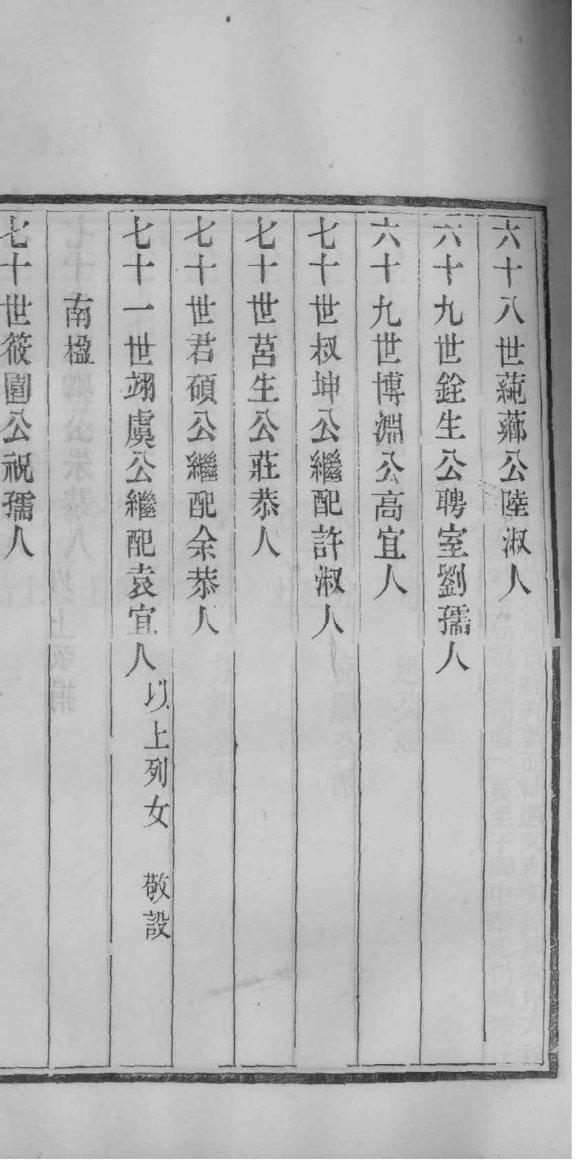 六十八世蒓薌公陸淑人
六十九世銓生公聘室劉孺人
六十九世博淵公高宜人
七十世叔坤公繼配許淑人
七十世莒生公莊恭人
七十世君碩公繼配余恭人
七十一世翊虞公繼配袁宜人以上列女 敬設
南楹
七十世筱園公祝孺人